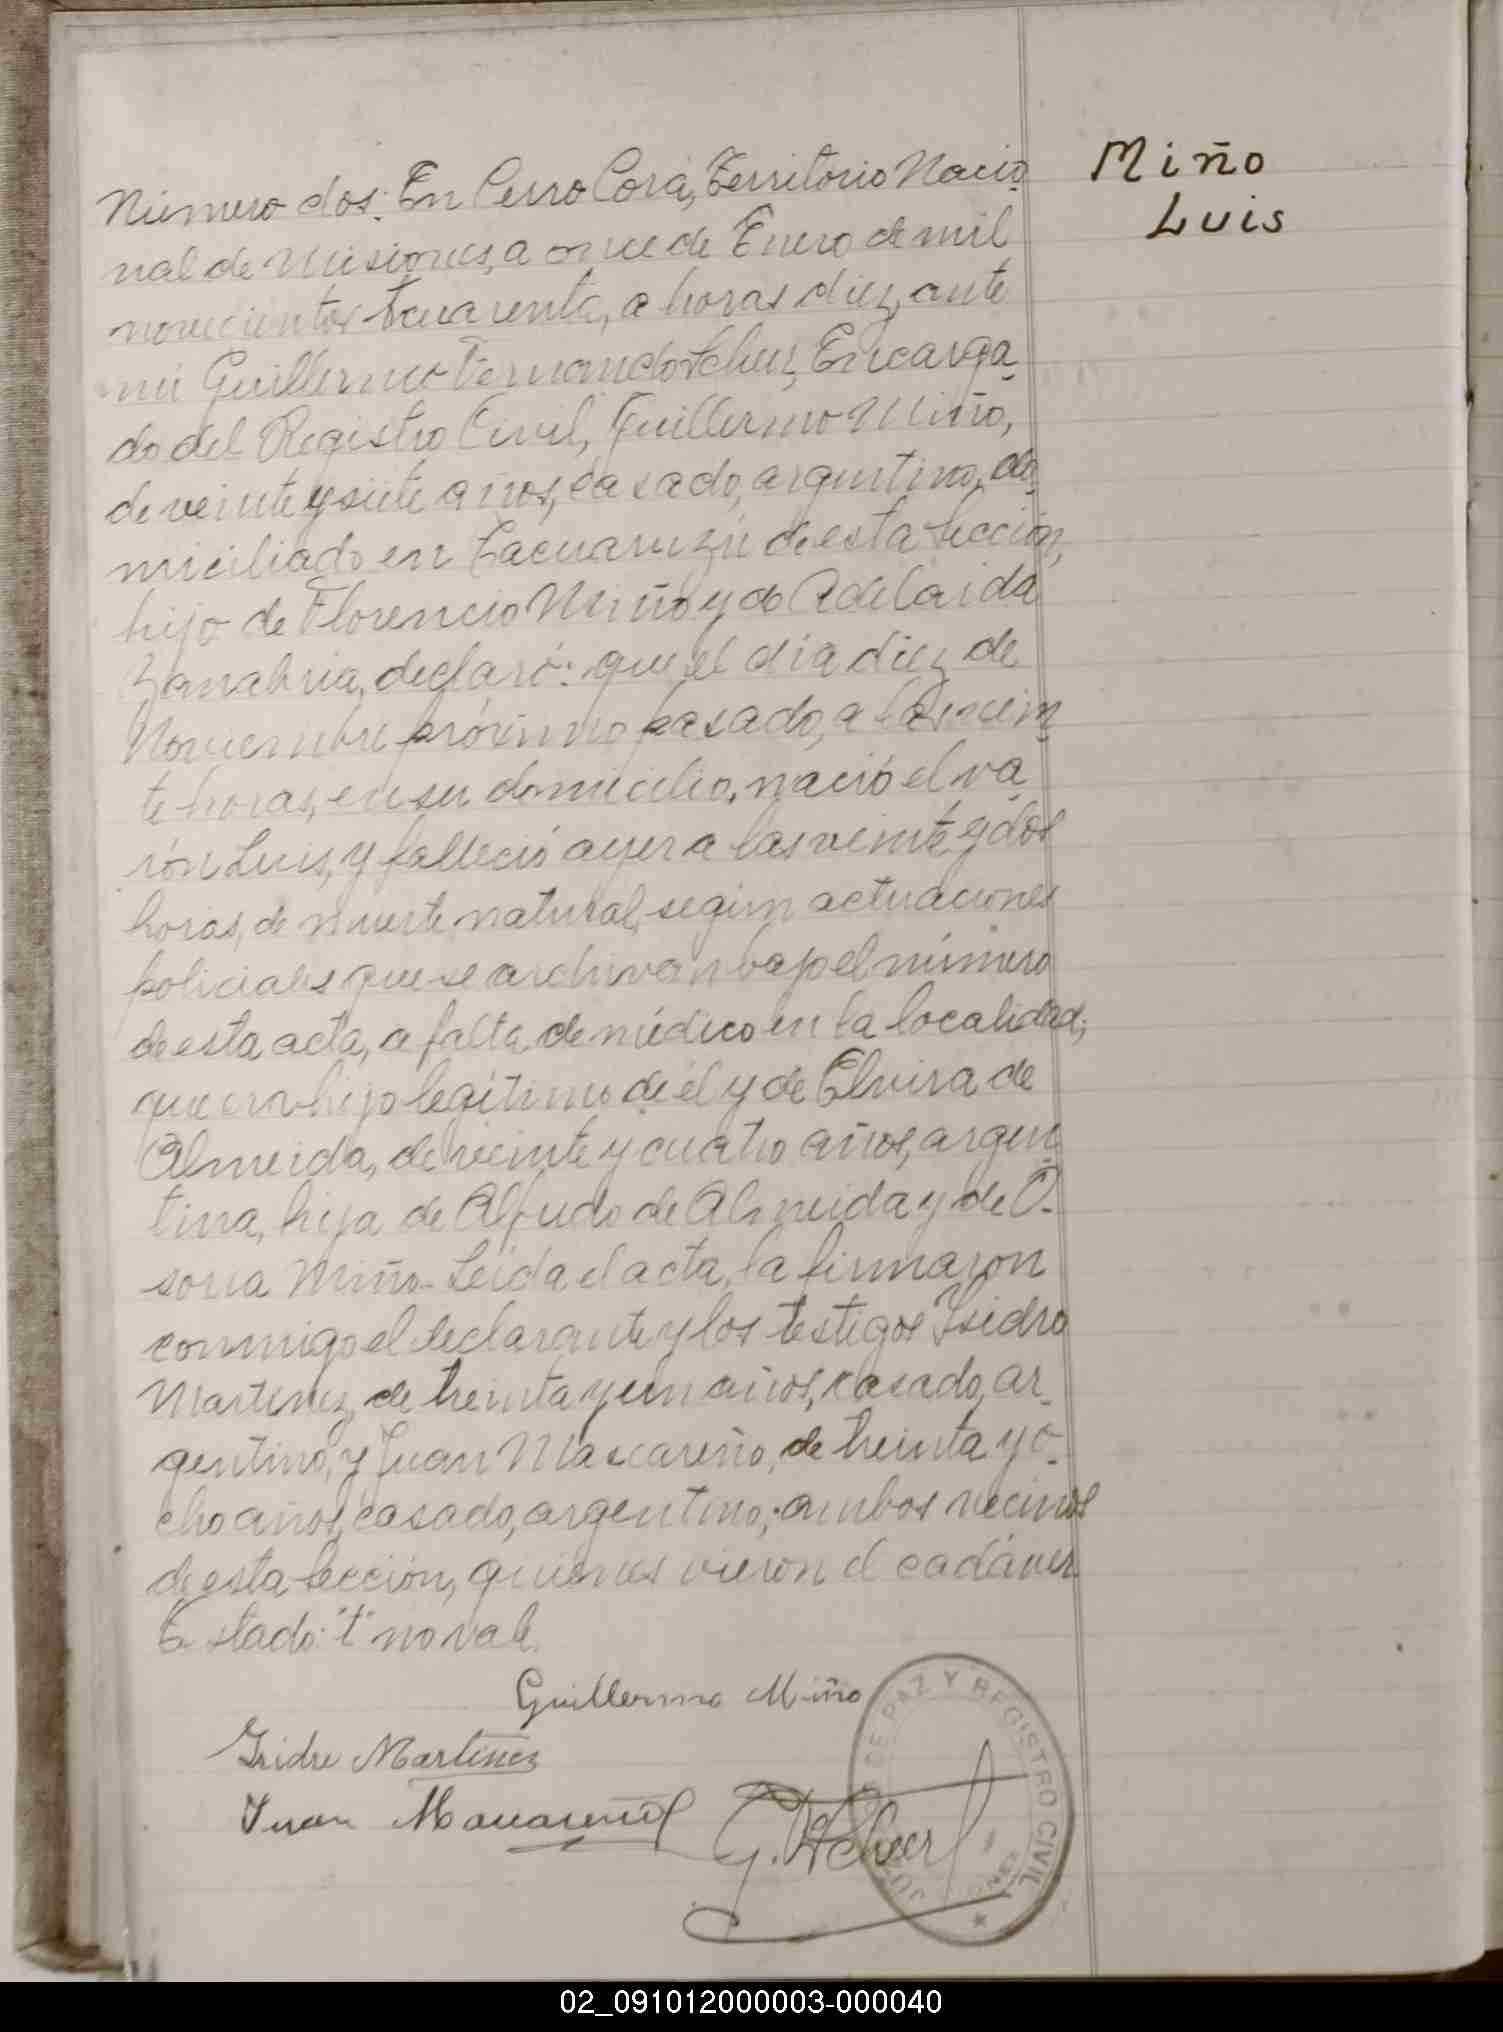 Miño
Luis
Número dos: En Cerro Corá, Territorio Nacio-
nal de Misiones, a once de Enero de mil
novecientos tcuarenta, a horas diez, ante
mi Guillermo Fernando Scheer, Encarga-
do del Registro Civil, Guillermo Miño,
de veinte y siete años, casado, argentino, do-
miciliado en Tacuaruzú de esta sección,
hijo de Florencio Miño y de Adelaida
Zanabria, declaró: que el día diez de
Noviembre próximo pasado, a las vein-
te horas, en su domicilio, nació el va-
rón Luis, y falleció ayer a las veinte y dos
horas, de muerte natural, según actuaciones
policiales que se archivan bajo el número
de esta acta, a falta de médico en la localidad;
que era hijo legítimo de él y de Elvira de
Almeida, de veinte y cuatro años, argen-
tina, hija de Alfredo de Almeida y de O-
soria Miño. Leída el acta, la firmaron
conmigo el declarante y los testigos Isidro
Martinez, de treinta y un años, casado, ar-
gentino, y Juan Mascareño, de treinta y o-
cho años, casado, argentino; ambos vecinos
de esta sección, quienes vieron el cadáver
Testado: "t" no vale.
Guillermo Miño
Isidro Martinez
Juan Mascareño
G. F. Scheer
JUZGADO DE PAZ Y REGISTRO CIVIL
02_091012000003-000040